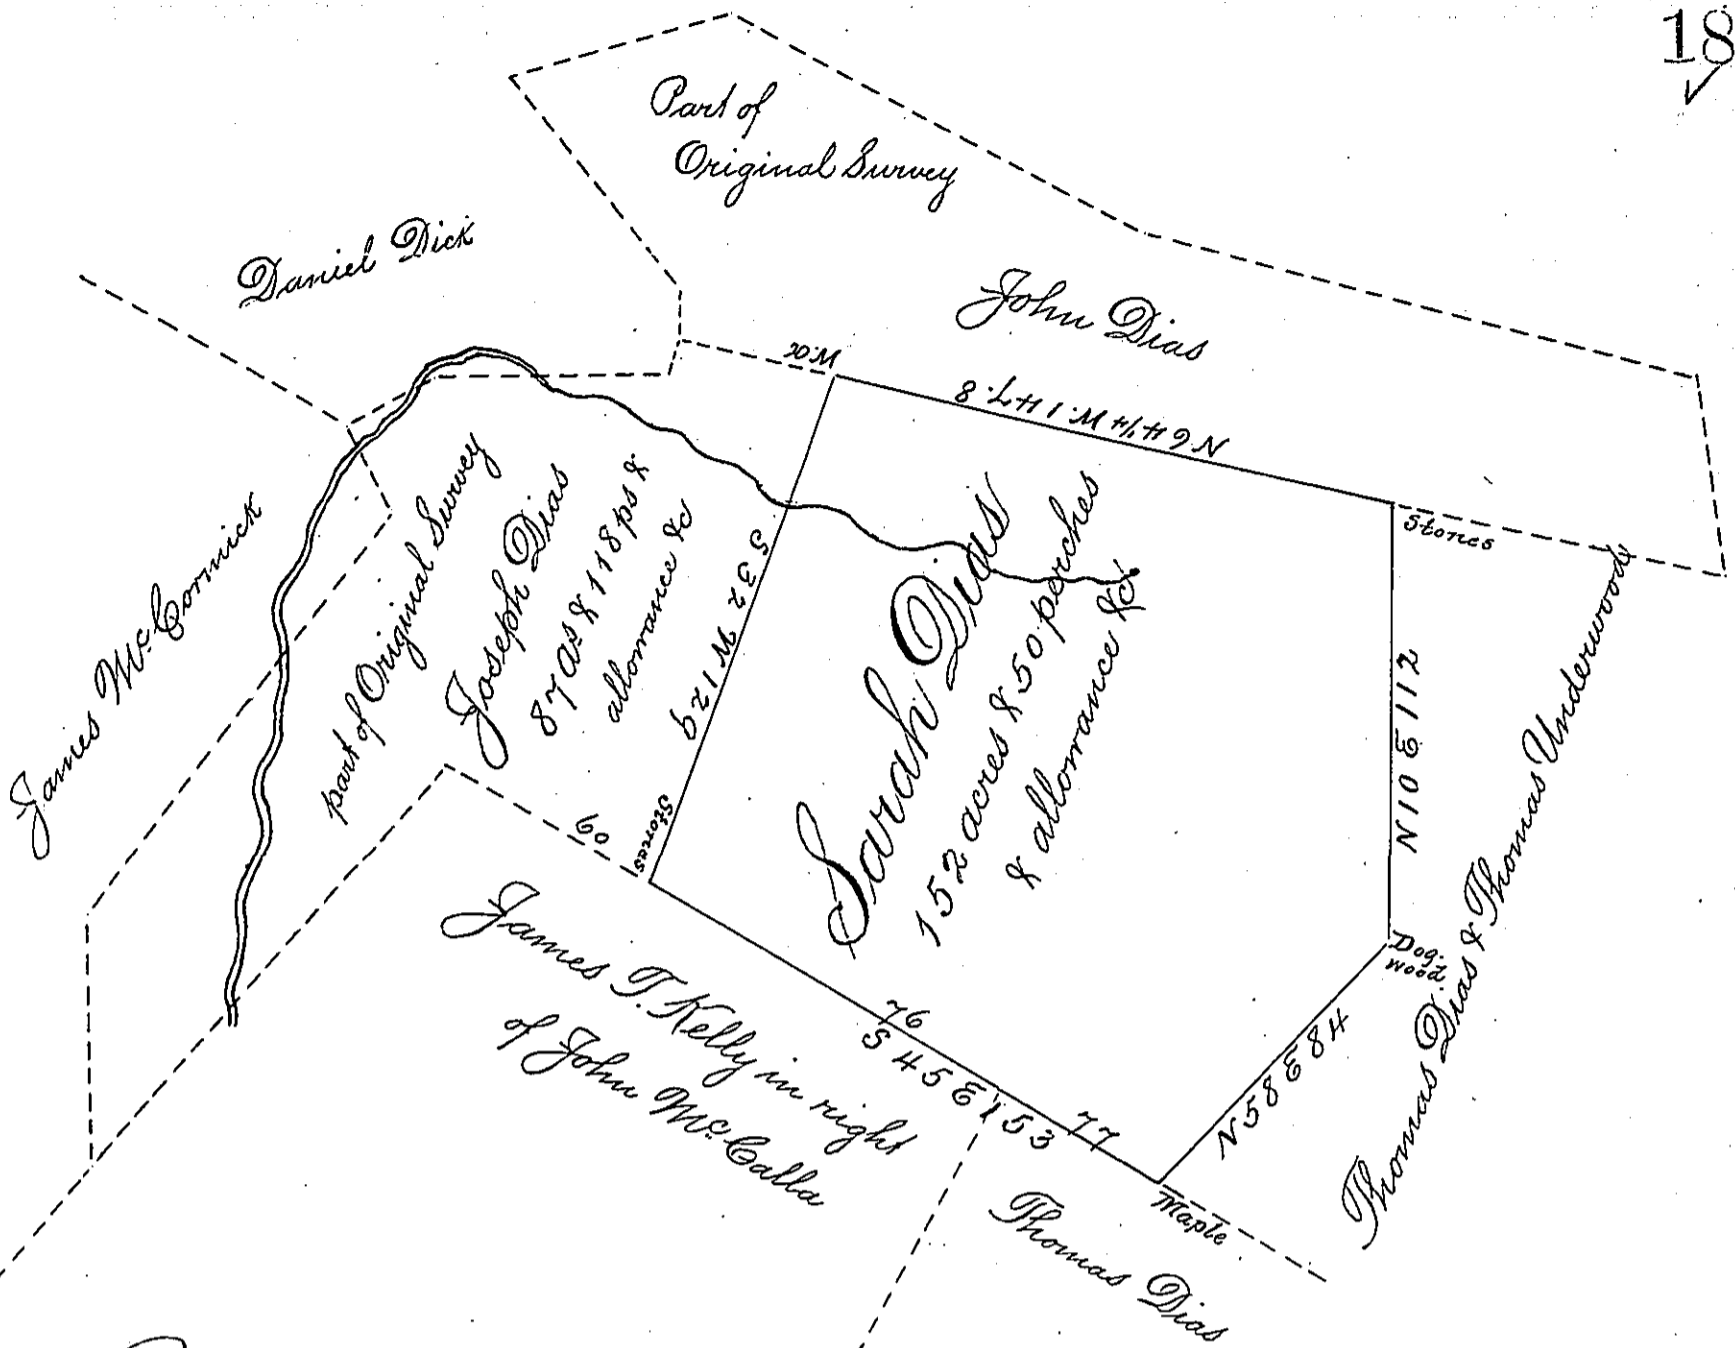 18
Part of
Original Survey
Daniel Dick
John Dias
W.O.
N 64 1/4 W. 147.8
Stones
James McCormick
part of Original Survey
Joseph Dias
87 as & 118 ps &
allowance &c
S 32 W 129
Sarah Dias
152 acres & 50 perches
& allowance &c
N 10 E 112
Thomas Dias & Thomas Underwood
60
Stones
Dog-
wood
James T. Kelly in right
of John McCalla
76
S 45 E 153
77
N 58 E 84
Maple
Thomas Dias